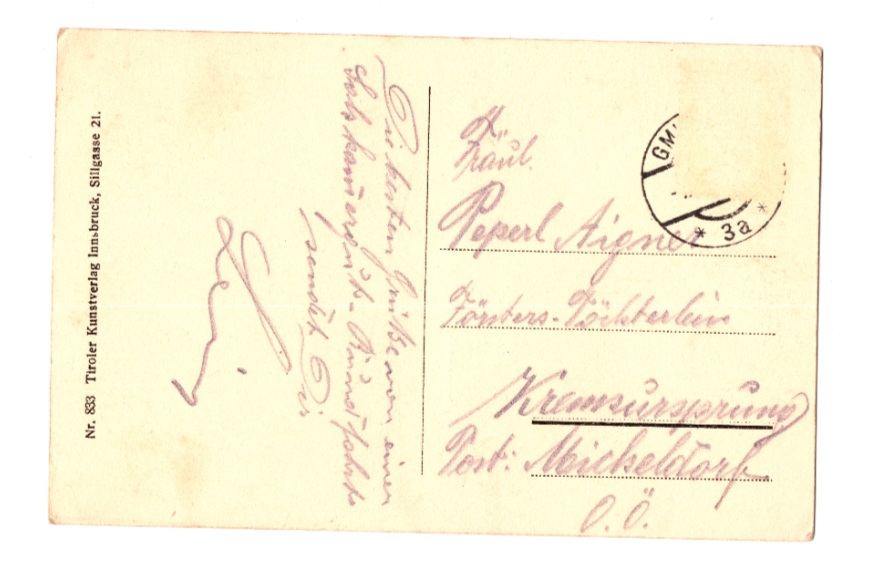 Nr. 833 Tiroler Kunstverlag Innsbruck, Sillgasse 21.
Die besten Grüße von einer
Salzkammergut-Rundfahrt
sendet Dir
GM
* 3a *
Fräul.
Peperl Aigner
Försters-Töchterlein
Kremsursprung
Post: Micheldorf
O.Ö.